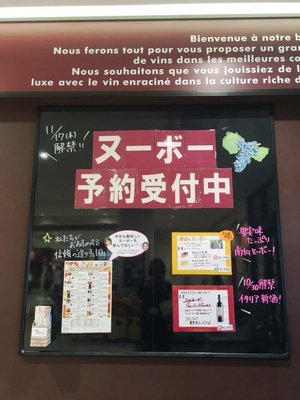 Bienvenue à notre b
Nous ferons tout pour vous proposer un gran
de vins dans les meilleures co
Nous souhaitons que vous jouissiez de l
luxe avec le vin enraciné dans la culture riche d
11/17(木)
解禁!!
ヌーボー
予約受付中
私たちが
お勧めする
信頼の造り手10社!
今年も美味しい
ヌーボーを
飲んでほしい!
南仏ヌーボー
果実味
たっぷり
南仏ヌーボー!
10/30解禁
イタリア新酒!